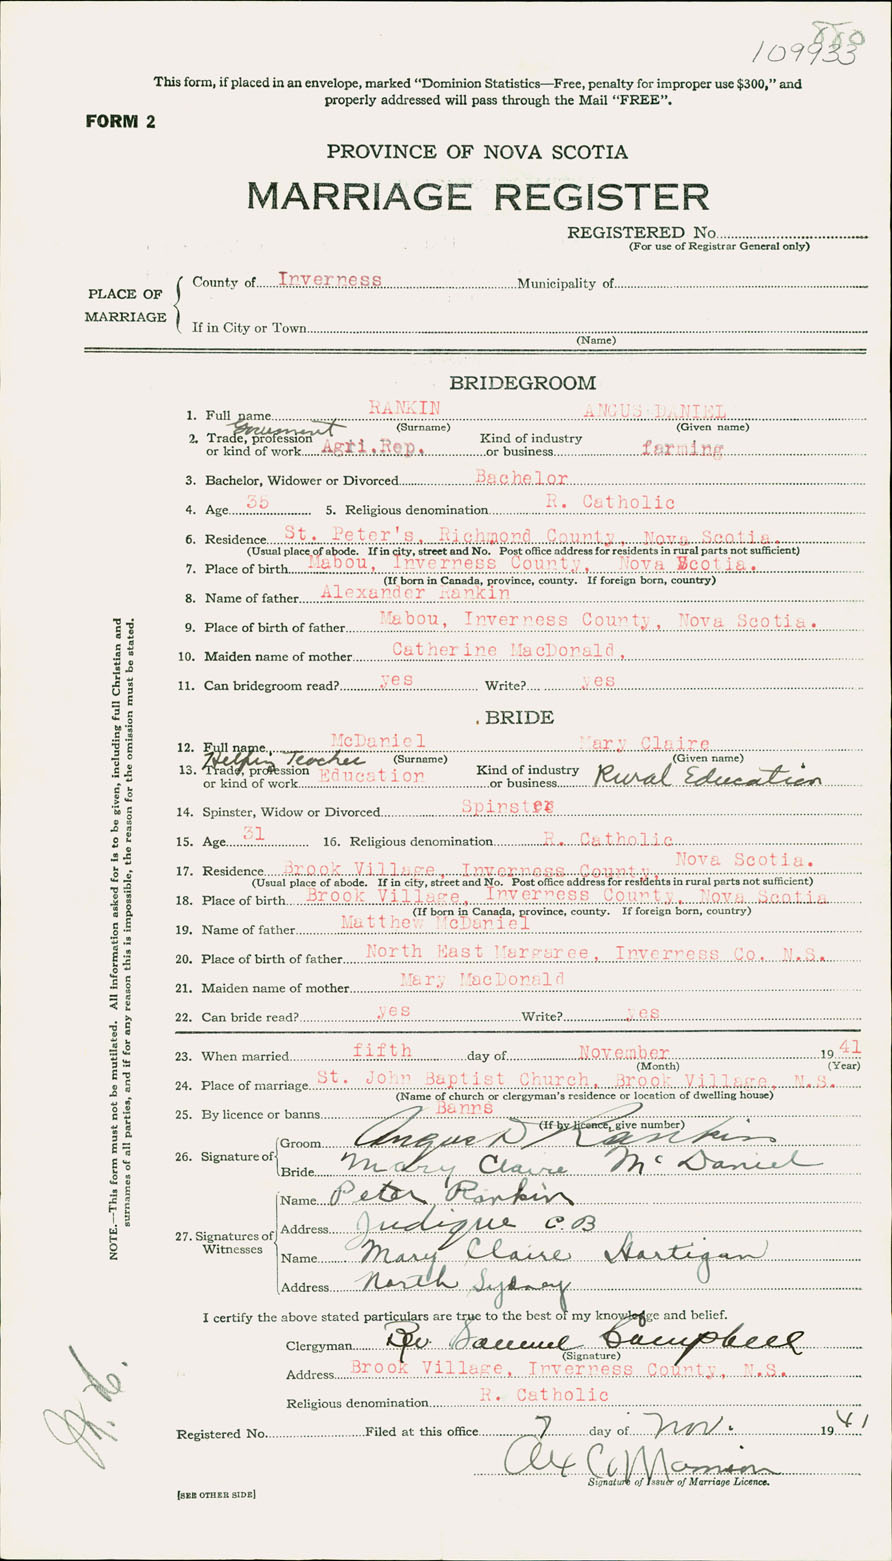 880
109933
This form, if placed in an envelope, marked "Dominion Statistics—Free, penalty for improper use $300," and
properly addressed will pass through the Mail "FREE".
FORM 2
PROVINCE OF NOVA SCOTIA
MARRIAGE REGISTER
REGISTERED No.
(For use of Registrar General only)
PLACE OF MARRIAGE
County of Inverness Municipality of
If in City or Town
(Name)
BRIDEGROOM
1. Full name RANKIN ANGUS DANIEL
(Surname) (Given name)
Government
2. Trade, profession Kind of industry
or kind of work Agri.Rep. or business farming
3. Bachelor, Widower or Divorced Bachelor
4. Age 35 5. Religious denomination R. Catholic
6. Residence St. Peter's, Richmond County, Nova Scotia.
(Usual place of abode. If in city, street and No. Post office address for residents in rural parts not sufficient)
7. Place of birth Mabou, Inverness County, Nova Scotia.
(If born in Canada, province, county. If foreign born, country)
8. Name of father Alexander Rankin
9. Place of birth of father Mabou, Inverness County, Nova Scotia.
10. Maiden name of mother Catherine MacDonald,
11. Can bridegroom read? yes Write? yes
BRIDE
12. Full name McDaniel Mary Claire
(Surname) (Given name)
Helping Teacher
13. Trade, profession Kind of industry
or kind of work Education or business Rural Education
14. Spinster, Widow or Divorced Spinster
15. Age 31 16. Religious denomination R. Catholic
17. Residence Brook Village, Inverness County, Nova Scotia.
(Usual place of abode. If in city, street and No. Post office address for residents in rural parts not sufficient)
18. Place of birth Brook Village, Inverness County, Nova Scotia
(If born in Canada, province, county. If foreign born, country)
19. Name of father Matthew McDaniel
20. Place of birth of father North East Margaree, Inverness Co. N.S.
21. Maiden name of mother Mary MacDonald
22. Can bride read? yes Write? yes
23. When married fifth day of November 1941
(Month) (Year)
24. Place of marriage St. John Baptist Church, Brook Village, N.S.
(Name of church or clergyman's residence or location of dwelling house)
25. By licence or banns Banns
(If by licence, give number)
26. Signature of
Groom Angus D Rankin
Bride Mary Claire McDaniel
27. Signatures of Witnesses
Name Peter Rankin
Address Judique C.B
Name Mary Claire Hartigan
Address North Sydney
I certify the above stated particulars are true to the best of my knowledge and belief.
Clergyman Rev Samuel Campbell
(Signature)
Address Brook Village, Inverness County, N.S.
Religious denomination R. Catholic
Registered No. Filed at this office 7 day of Nov. 1941
Signature of Issuer of Marriage Licence.
[SEE OTHER SIDE]
NOTE.—This form must not be mutilated. All information asked for is to be given, including full Christian and
surnames of all parties, and if for any reason this is impossible, the reason for the omission must be stated.